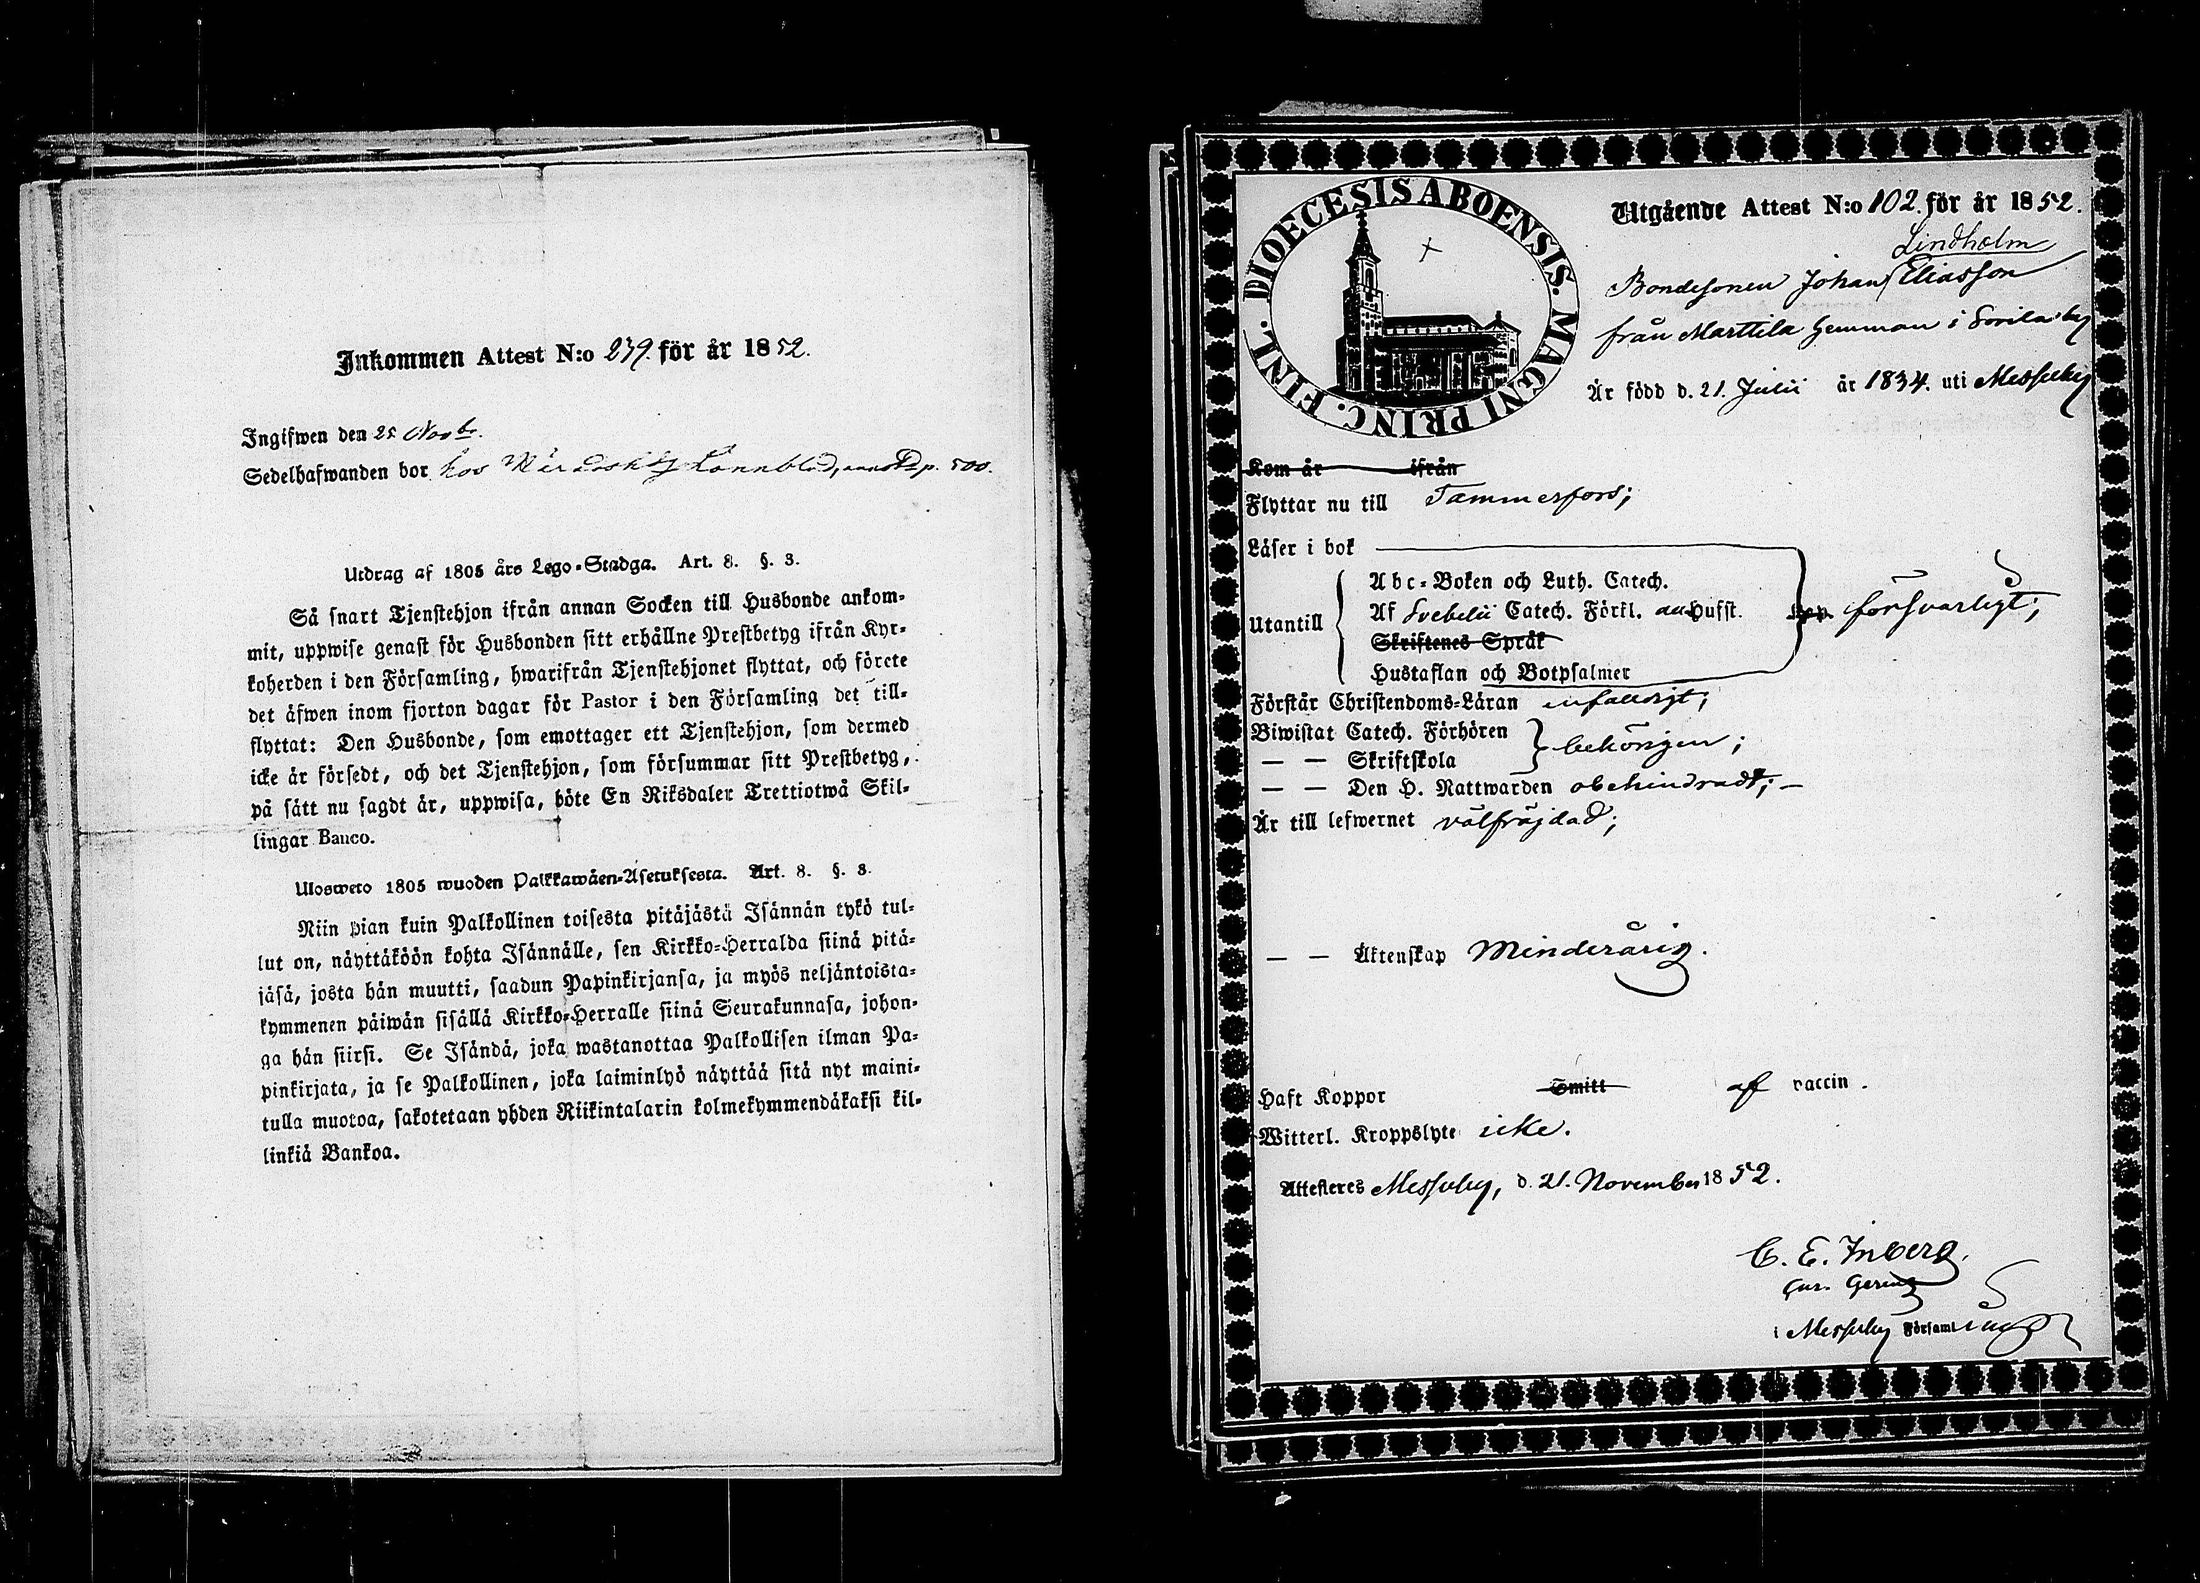 Inkommen Attest N:o 239. för år 1852.
Ingifwen den 25 Novbr.
Sedelhafwanden bor hos Lönnblad, p. 500.
Utdrag af 1805 års Lego-Stadga. Art. 8. §. 3.
Så snart Tjenstehjon ifrån annan Socken till Husbonde ankom-
mit, uppwise genast för Husbonden sitt erhållne Prestbetyg ifrån Kyr-
koherden i den Församling, hwarifrån Tjenstehjonet flyttat, och förete
det äfwen inom fjorton dagar för Pastor i den Församling det till-
flyttat: Den Husbonde, som emottager ett Tjenstehjon, som dermed
icke är försedt, och det Tjenstehjon, som försummar sitt Prestbetyg,
på sätt nu sagdt är, uppwisa, böte En Riksdaler Trettiotwå Skil-
lingar Banco.
Ulosweto 1805 wuoden Palkkawäen-Asetuksesta. Art. 8. §. 3.
Niin pian kuin Palkollinen toisesta pitäjästä Isännän tykö tul-
lut on, näyttäköön kohta Isännälle, sen Kirkko-Herralda siinä pitä-
jäsä, josta hän muutti, saadun Papinkirjansa, ja myös neljäntoista-
kymmenen päiwän sisällä Kirkko-Herralle siinä Seurakunnasa, johon-
ga hän siirsi. Se Isändä, joka wastanottaa Palkollisen ilman Pa-
pinkirjata, ja se Palkollinen, joka laiminlyö näyttää sitä nyt maini-
tulla muotoa, sakotetaan yhden Riikintalarin kolmekymmendäkaksi kil-
linkiä Bankoa.
DIOECESIS ABOENSIS. MAGNI PRINC. FINL.
Utgående Attest N:o 102. för år 1852.
Lindholm
Bondesonen Johan Eliasson
från Marttila hemman i Sorila by
Är född d. 21. Julii år 1834. uti Messuby
Kom år ifrån
Flyttar nu till Tammerfors;
Läser i bok
Abc-Boken och Luth. Catech.
Utantill Af Svebelii Catech. Förkl. Hufst. försvarligt;
Skriftenes Språk
Hustaflan och Botpsalmer
Förstår Christendoms-Läran enfaldigt;
Biwistat Catech. Förhören
— — Skriftskola behörigen;
— — Den H. Nattwarden obehindradt; —
Är till lefwernet välfräjdad;
— — Äktenskap Minderårig.
Haft Koppor Smitt af vaccin.
Witterl. Kroppslyte icke.
Attesteres Messuby, d. 21. November 1852.
C. E. Inberg.
i Messuby Församling